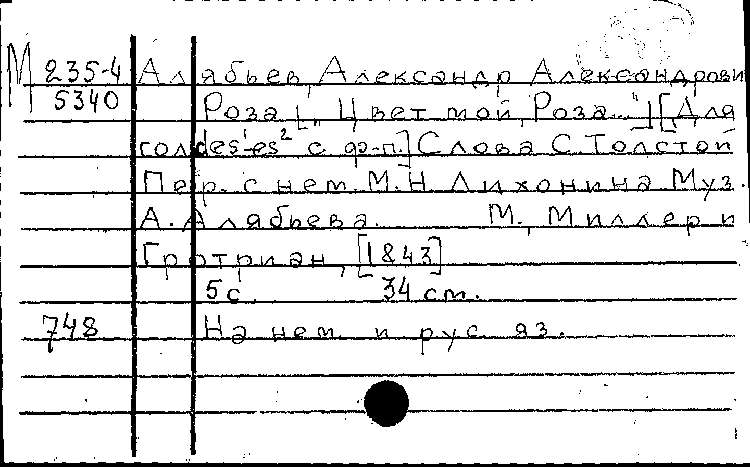 М 235-4 Алябьев, Александр Александрови
5340 Роза [„Цвет мой, Роза..."] [Для
гол des'-es² с ф-п.] Слова С Толстой
Пер. с нем. М. Н Лихонина Муз.
А. Алябьева. М., Миллер и
Гротриан, [1843]
5 с. 34 см.
748 На нем и рус яз.